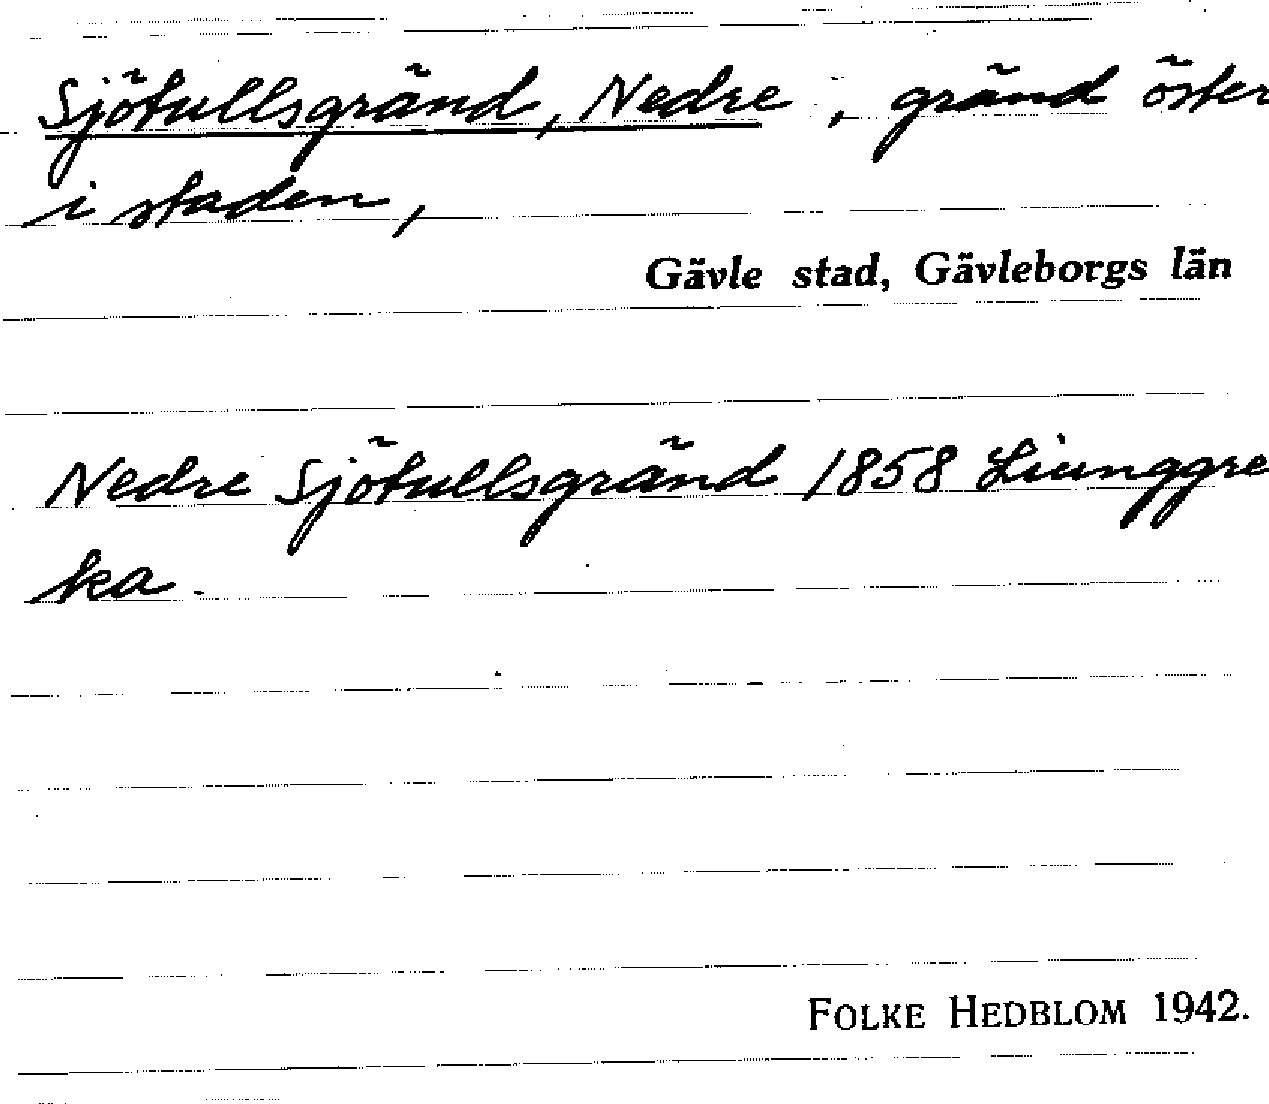 Sjötullsgränd, Nedre, gränd öster
i staden,
Gävle stad, Gävleborgs län
Nedre Sjötullsgränd 1858 Liunggre
ka.
FOLKE HEDBLOM 1942.